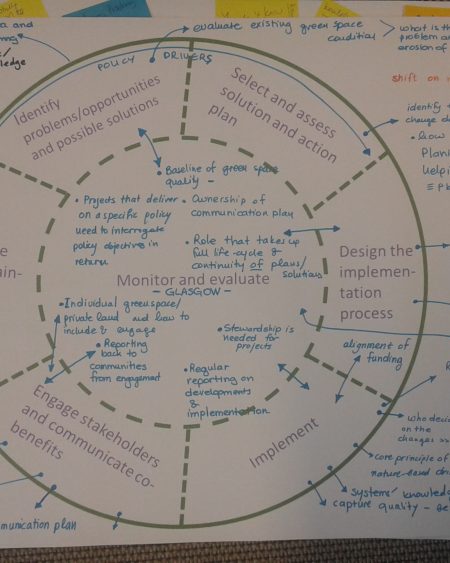 evaluate existing green space
condition
what is th
problem an
erosion of
a and
POLICY DRIVERS
ledge
shift on
Identify
problems/opportunities
and possible solutions
Select and assess
solution and action
plan
identify
change d
• how
Plan
helpi
Baseline of green space
quality –
• Projects that deliver
on a specific policy
need to interrogate
policy objectives in
return
• Ownership of
communication plan
• Role that takes up
full life-cycle &
continuity of plans/
solutions
Monitor and evaluate
– GLASGOW –
Design the
implemen-
tation
process
e
ain-
• Individual greenspace/
private land and how to
include & engage
• Reporting
back to
communities
from engagement
• Stewardship is
needed for
projects
• Regular
reporting on
developments
&
implementation
alignment of
funding
Engage stakeholders
and communicate co-
benefits
Implement
who deci
on the
changes
core principle of
nature-based
systems' knowled
capture quality –
munication plan